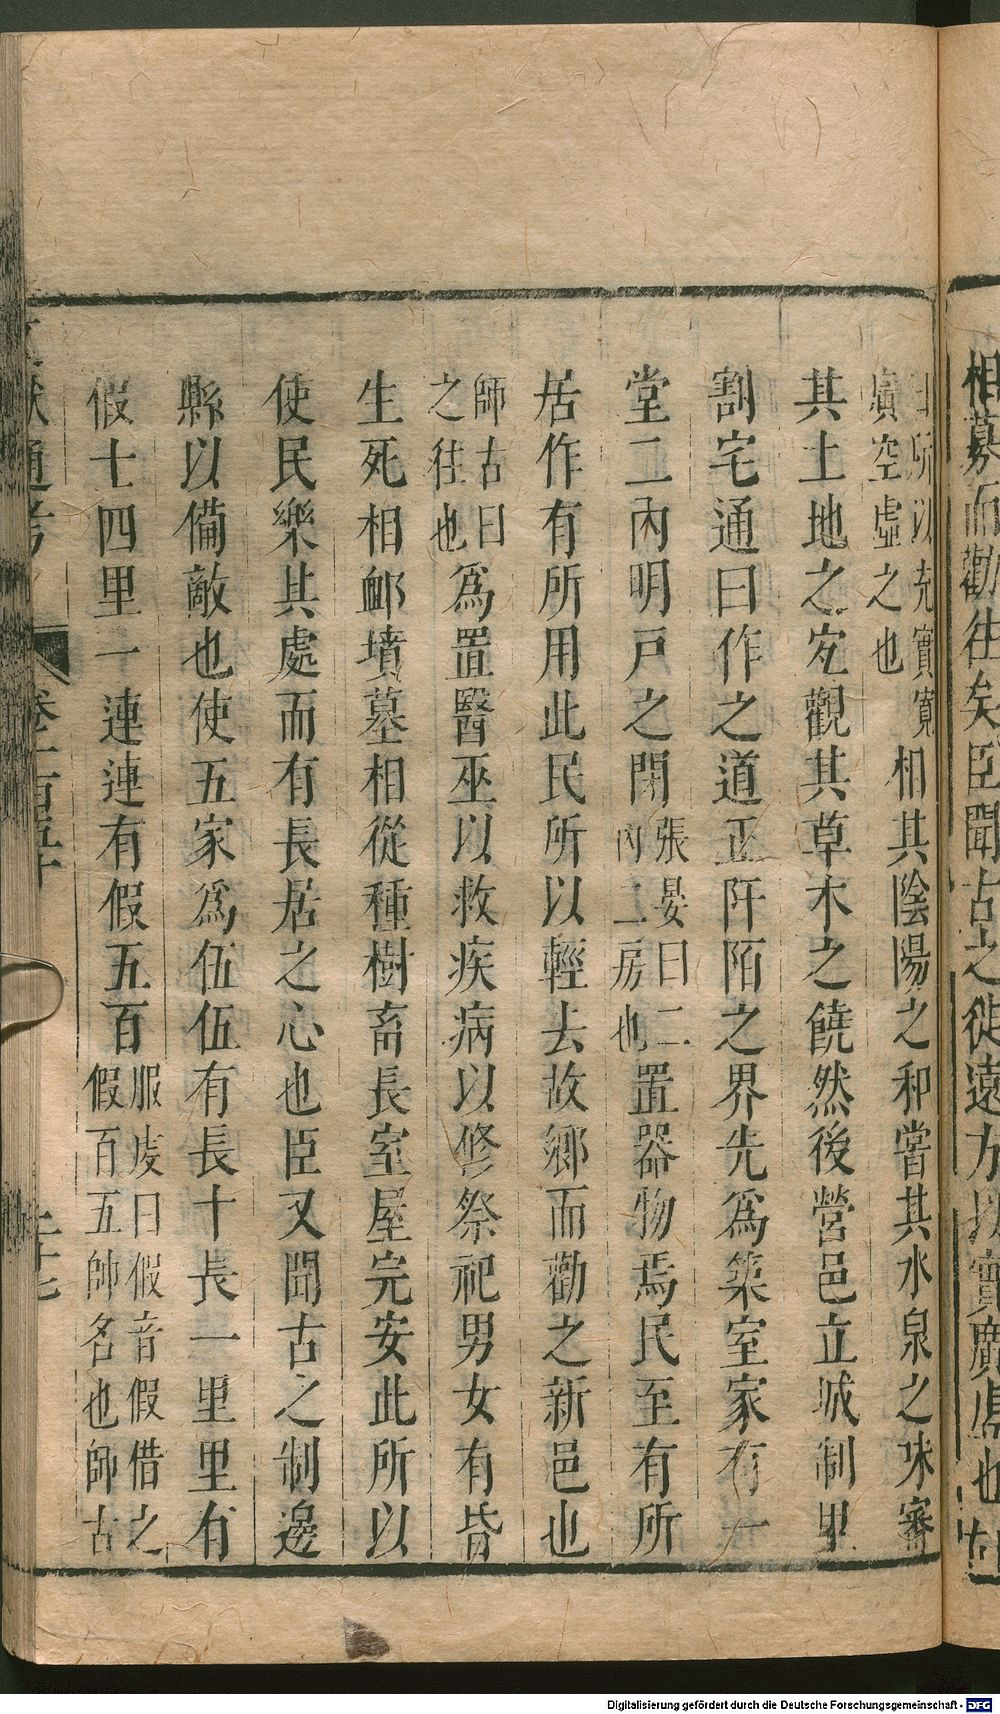 相募而勸往矣臣聞古之徙遠方以實廣虛也
所以充實寬
廣空虛之也
相其陰陽之和嘗其水泉之味審
其土地之宜觀其草木之饒然後營邑立城制里
割宅通田作之道正阡陌之界先爲築室家有一
堂二內門戶之閉
張晏曰二
內二房也
置器物焉民至有所
居作有所用此民所以輕去故鄉而勸之新邑也
師古曰
之往也
爲置醫巫以救疾病以修祭祀男女有昏
生死相卹墳墓相從種樹畜長室屋完安此所以
使民樂其處而有長居之心也臣又聞古之制邊
縣以備敵也使五家爲伍伍有長十長一里里有
假士四里一連連有假五百
服虔曰假音假借之
假百五帥名也師古
文獻通考
卷一百五十
二十七
Digitalisierung gefördert durch die Deutsche Forschungsgemeinschaft - DFG